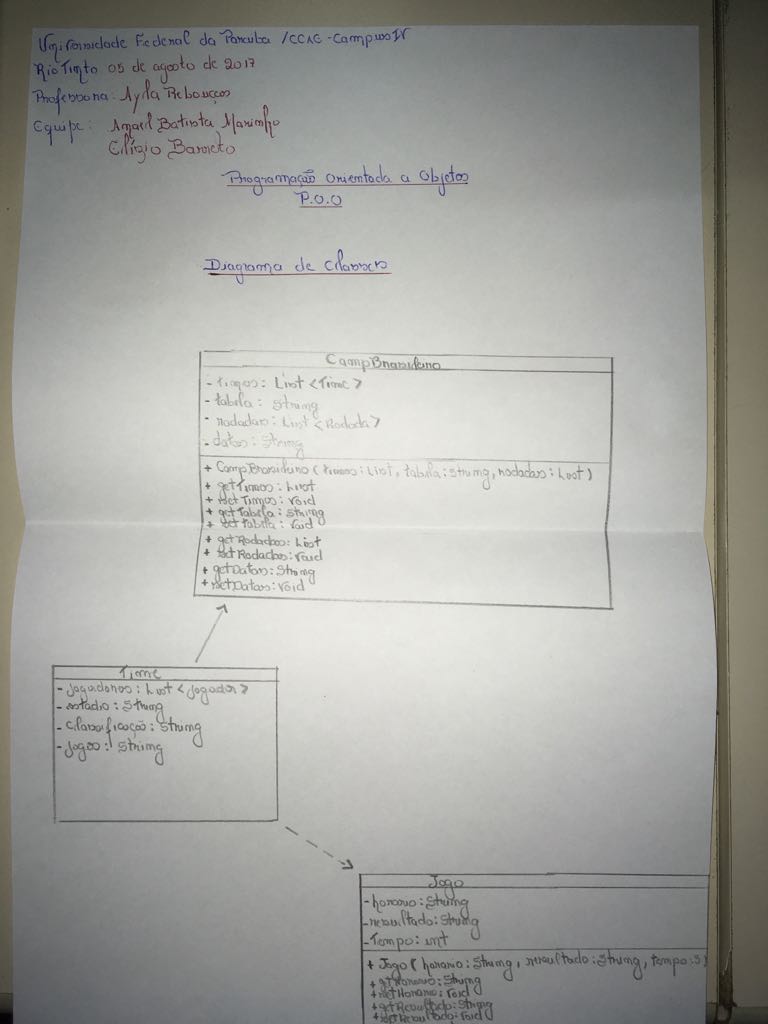 Universidade Federal da Paraíba /CCAE - Campus IV
Rio Tinto 05 de agosto de 2017
Professora: Ayla Rebouças
Equipe: Amael Batista Marinho
Elízio Barreto
Programação Orientada a Objetos
P.O.O
Diagrama de Classes
CampBrasileiro
- times: List <Time>
- tabela: String
- rodadas: List <Rodada>
- datas: String
+ CampBrasileiro (times: List, tabela: String, rodadas: List)
+ getTimes: List
+ setTimes: Void
+ getTabela: String
+ setTabela: Void
+ getRodadas: List
+ setRodadas: Void
+ getDatas: String
+ setDatas: Void
Time
- Jogadores: List <Jogador>
- estádio: String
- Classificação: String
- Jogos: String
Jogo
- horario: String
- resultado: String
- Tempo: int
+ Jogo (horario: String, resultado: String, tempo: S)
+ getHorario: String
+ setHorario: Void
+ getResultado: String
+ setResultado: Void